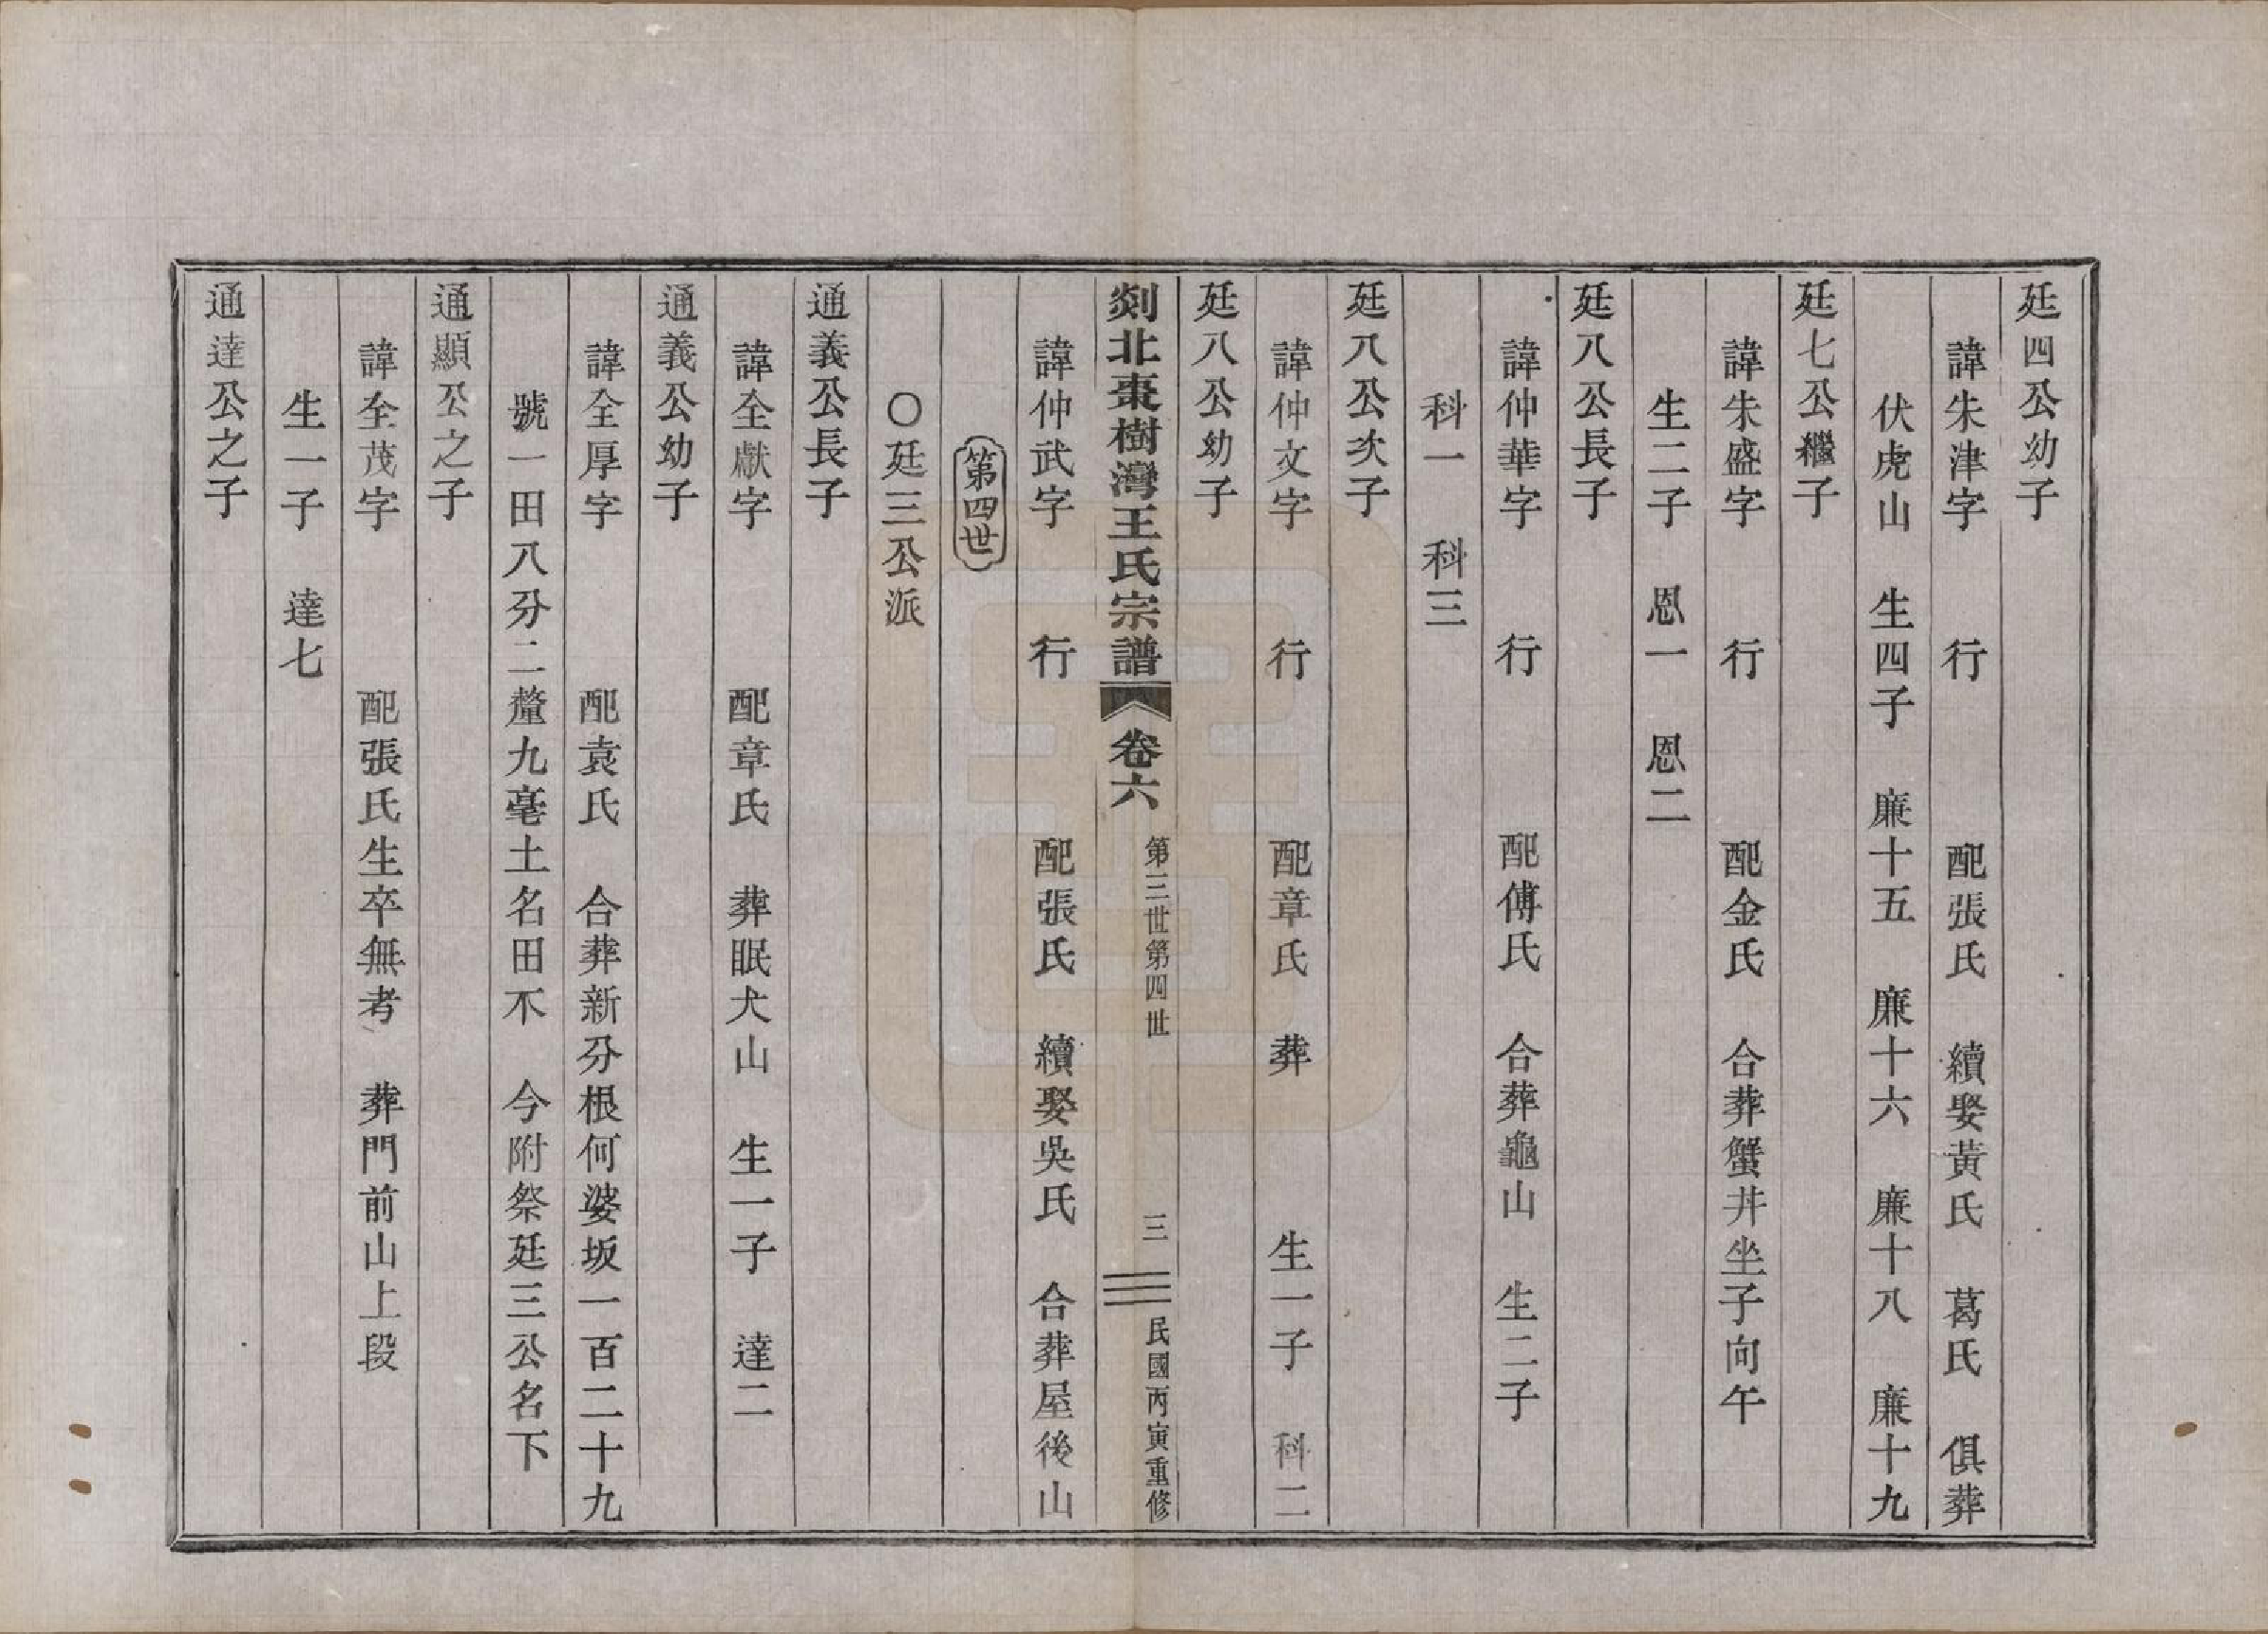 廷四公幼子
諱朱津字　行　配張氏　續娶黃氏　葛氏　俱葬
伏虎山　生四子　廉十五　廉十六　廉十八　廉十九
廷七公繼子
諱朱盛字　行　配金氏　合葬蟹井坐子向午
生二子　恩一　恩二
廷八公長子
諱仲華字　行　配傅氏　合葬龜山　生二子
科一　科三
廷八公次子
諱仲文字　行　配章氏　葬　生一子　科二
廷八公幼子
剡北棗樹灣王氏宗譜　卷六　第三世第四世　三　民國丙寅重修
諱仲武字　行　配張氏　續娶吳氏　合葬屋後山
第四世
〇廷三公派
通義公長子
諱全獻字　配章氏　葬眠犬山　生一子　達二
通義公幼子
諱全厚字　配袁氏　合葬新分根何婆坂一百二十九
號一田八分二釐九毫土名田不　今附祭廷三公名下
通顯公之子
諱全茂字　配張氏生卒無考　葬門前山上段
生一子　達七
通達公之子